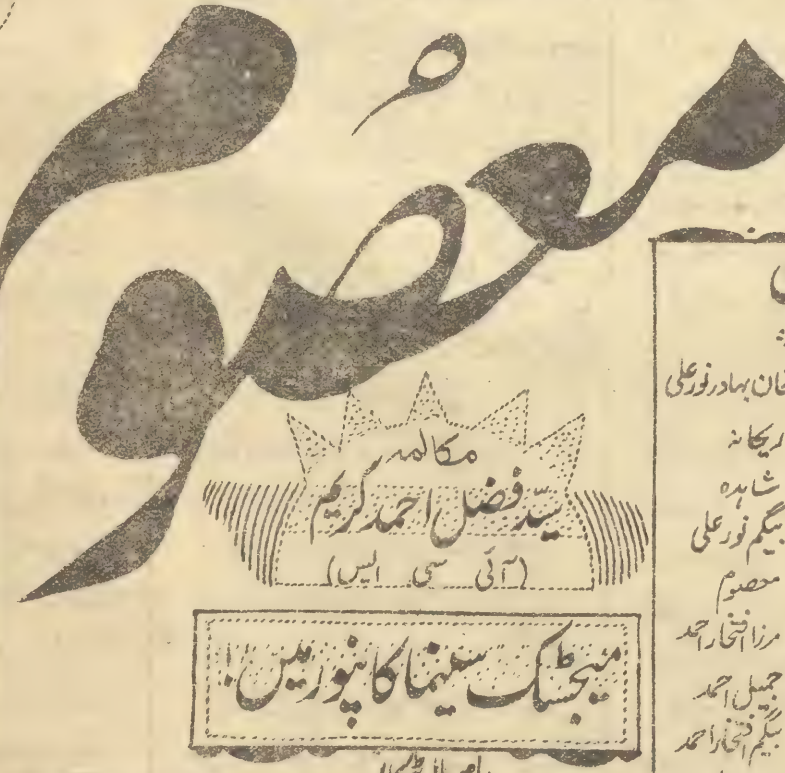 معصوم
مکالمہ
سید فضل احمد کریم
(آئی سی ایس)
میجسٹک سینما کانپور میں!
خان بہادر نور علی
ریحانہ
شاہدہ
بیگم نور علی
معصوم
مرزا افتخار احمد
جمیل احمد
بیگم افتخار احمد